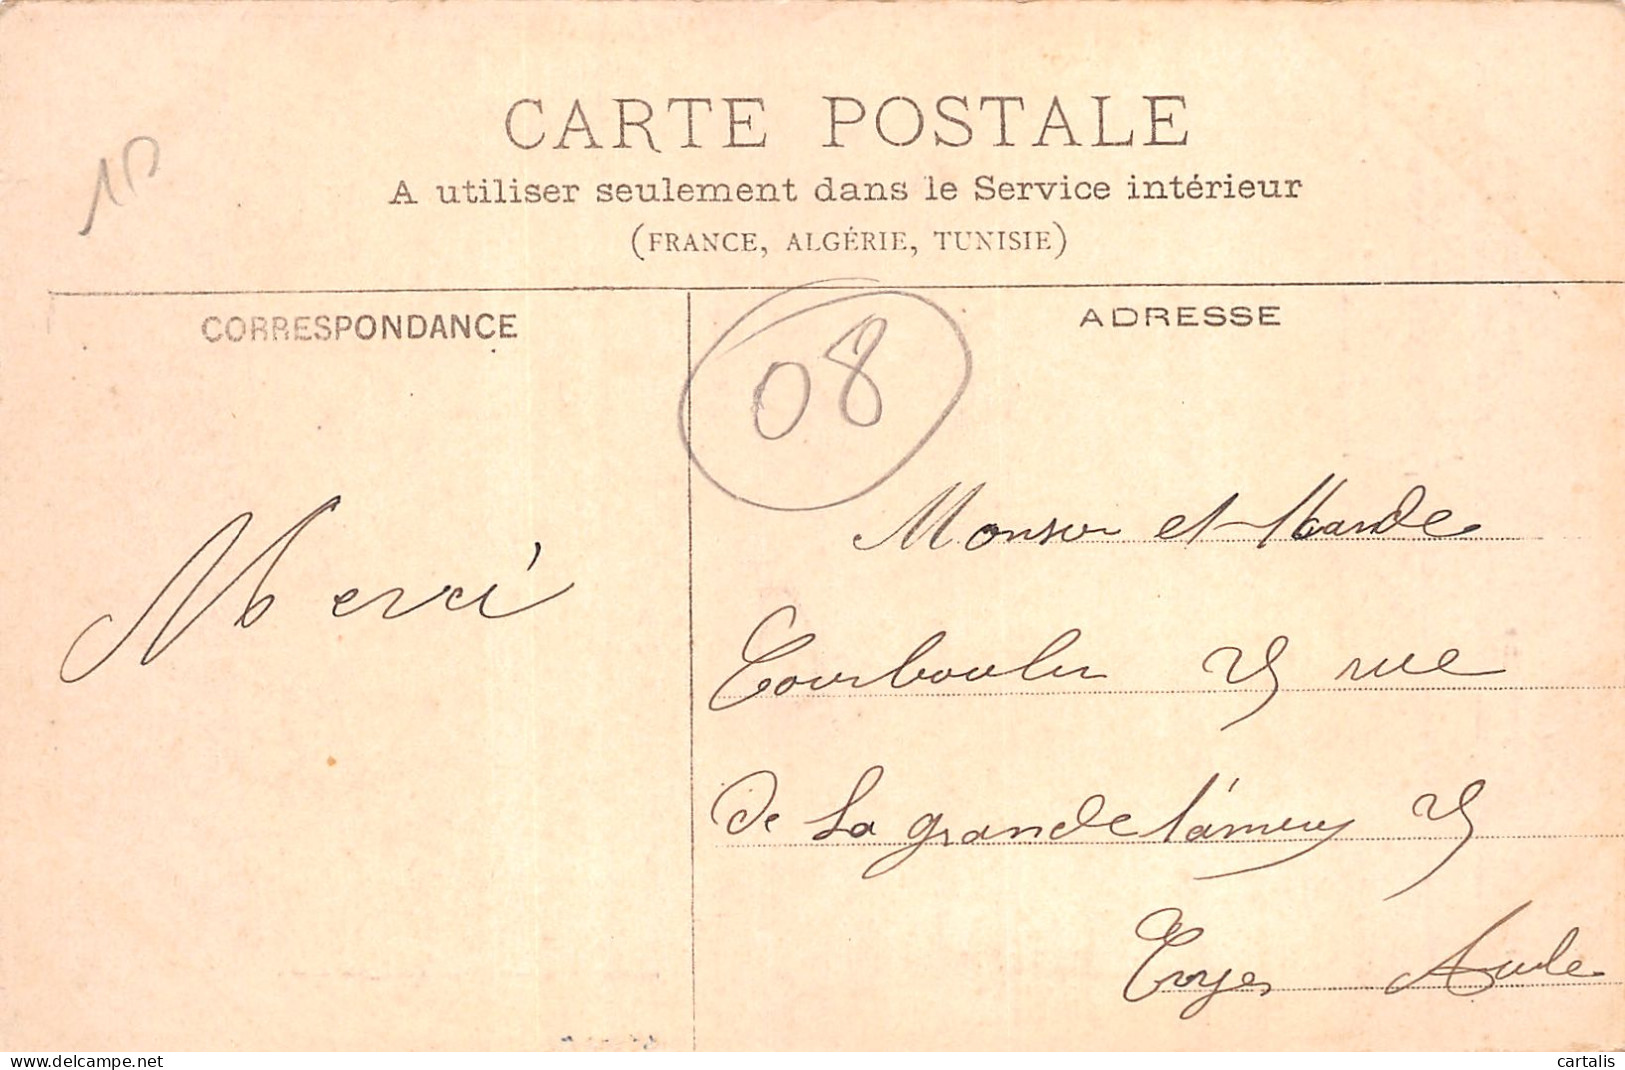 10
CARTE POSTALE
A utiliser seulement dans le Service intérieur
(FRANCE, ALGÉRIE, TUNISIE)
CORRESPONDANCE
ADRESSE
08
Merci
et
rue
de La grande
Troyes Aude
www.delcampe.net
cartalis